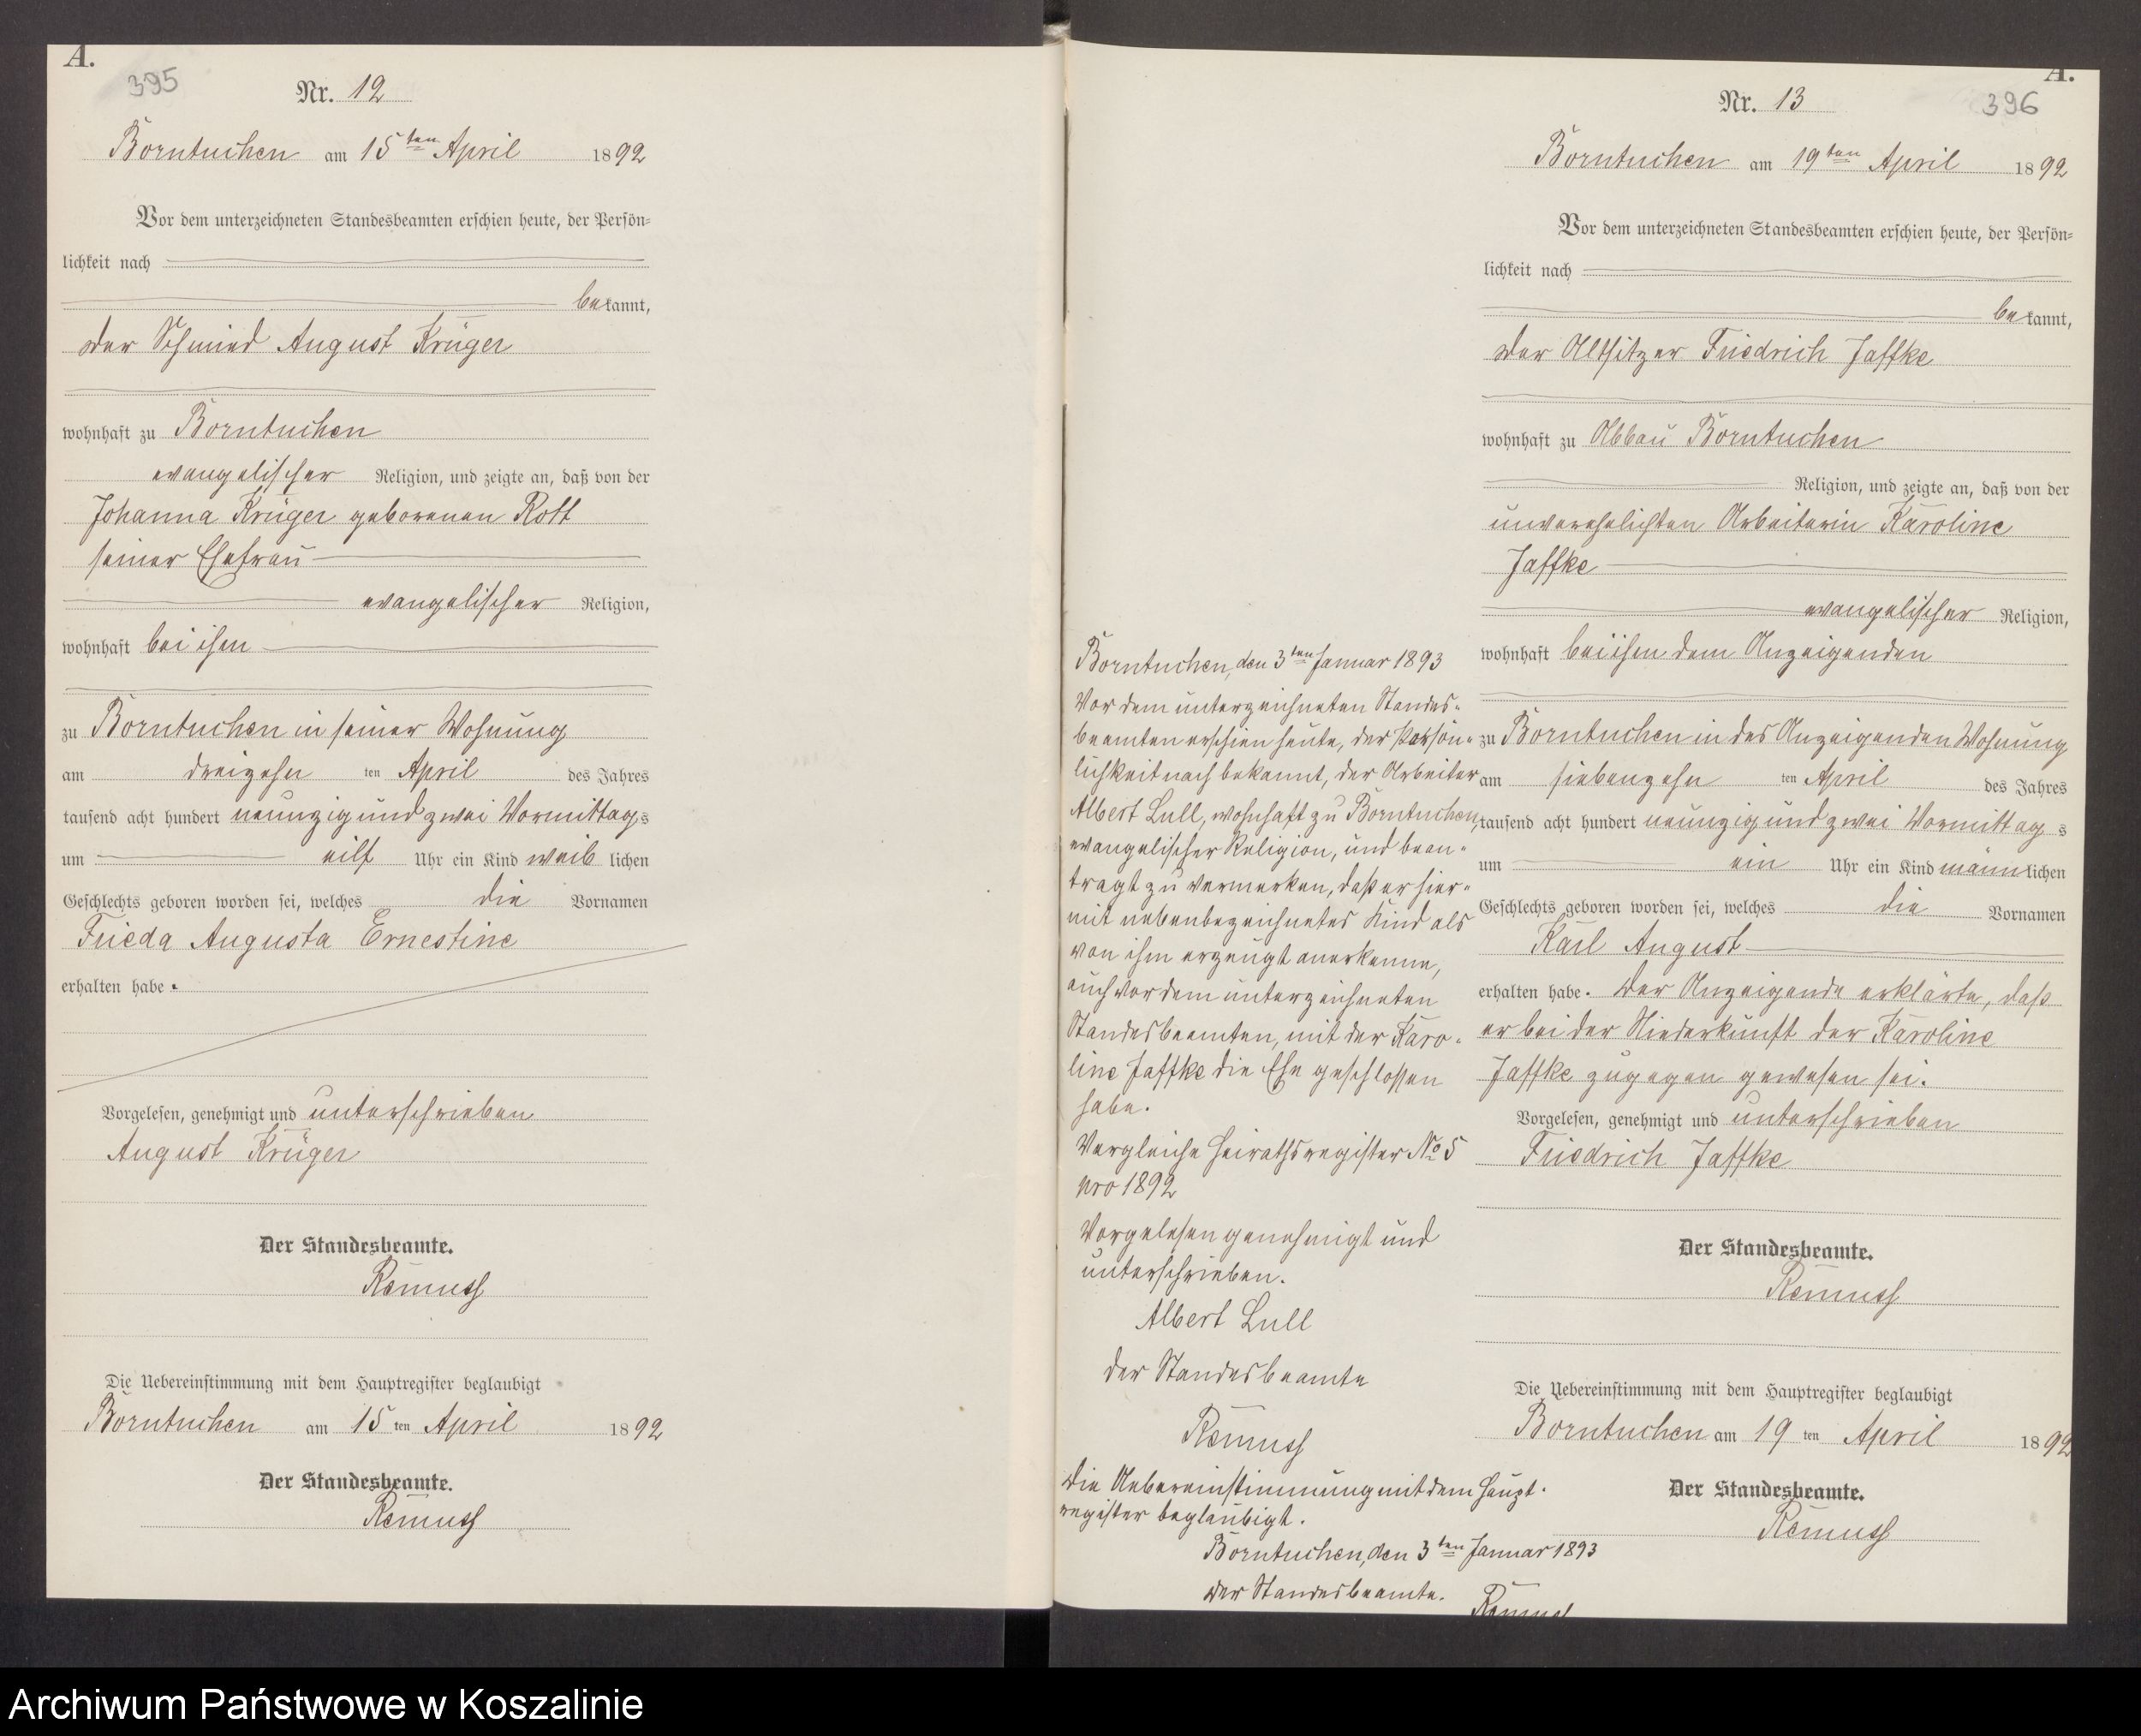 A.
395
Nr. 12
Borntuchen am 15ten April 1892
Vor dem unterzeichneten Standesbeamten erschien heute, der Persön=
lichkeit nach
bekannt,
der Schmied August Krüger
wohnhaft zu Borntuchen
evangelischer Religion, und zeigte an, daß von der
Johanna Krüger geborenen Rott
seiner Ehefrau
evangelischer Religion,
wohnhaft bei ihm
zu Borntuchen in seiner Wohnung
am dreizehn ten April des Jahres
tausend acht hundert neunzig und zwei Vormittags
um eilf Uhr ein Kind weiblichen
Geschlechts geboren worden sei, welches die Vornamen
Frieda Augusta Ernestine
erhalten habe.
Vorgelesen, genehmigt und unterschrieben
August Krüger
Der Standesbeamte.
Remuss
Die Uebereinstimmung mit dem Hauptregister beglaubigt
Borntuchen am 15 ten April 1892
Der Standesbeamte.
Remuss
A.
396
Nr. 13
Borntuchen am 19ten April 1892
Vor dem unterzeichneten Standesbeamten erschien heute, der Persön=
lichkeit nach
bekannt,
der Altsitzer Friedrich Jaffke
wohnhaft zu Abbau Borntuchen
Religion, und zeigte an, daß von der
unverehelichten Arbeiterin Karoline
Jaffke
evangelischer Religion,
wohnhaft bei ihm dem Anzeigenden
zu Borntuchen in des Anzeigenden Wohnung
am siebenzehn ten April des Jahres
tausend acht hundert neunzig und zwei Vormittags
um ein Uhr ein Kind männlichen
Geschlechts geboren worden sei, welches die Vornamen
Karl August
erhalten habe. Der Anzeigende erklärte, daß
er bei der Niederkunft der Karoline
Jaffke zugegen gewesen sei.
Vorgelesen, genehmigt und unterschrieben
Friedrich Jaffke
Der Standesbeamte.
Remuss
Die Uebereinstimmung mit dem Hauptregister beglaubigt
Borntuchen am 19 ten April 1892
Der Standesbeamte.
Remuss
Borntuchen, den 3ten Januar 1893
Vor dem unterzeichneten Standes=
beamten erschien heute, der Persön=
lichkeit nach bekannt, der Arbeiter
Albert Lull, wohnhaft zu Borntuchen,
evangelischer Religion, und bean=
tragt zu vermerken, daß er hier=
mit nebenbezeichnetes Kind als
von ihm erzeugt anerkenne,
auch vor dem unterzeichneten
Standesbeamten, mit der Karo=
line Jaffke die Ehe geschlossen
habe.
Vergleiche Heirathsregister No 5
pro 1892
Vorgelesen genehmigt und
unterschrieben.
Albert Lull
der Standesbeamte
Remuss
Die Uebereinstimmung mit dem Haupt=
register beglaubigt.
Borntuchen, den 3ten Januar 1893
Der Standesbeamte.
Remuss
Archiwum Państwowe w Koszalinie